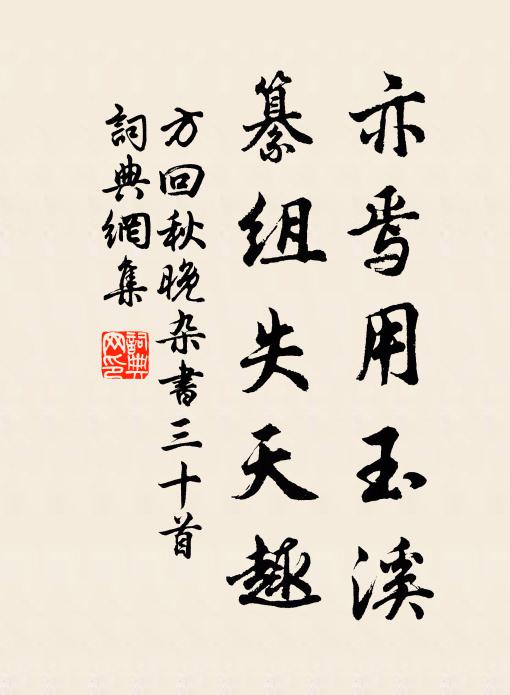 亦焉用玉溪
纂组失天趣
方回秋晚杂書三十首
詞典網集
詞典网印